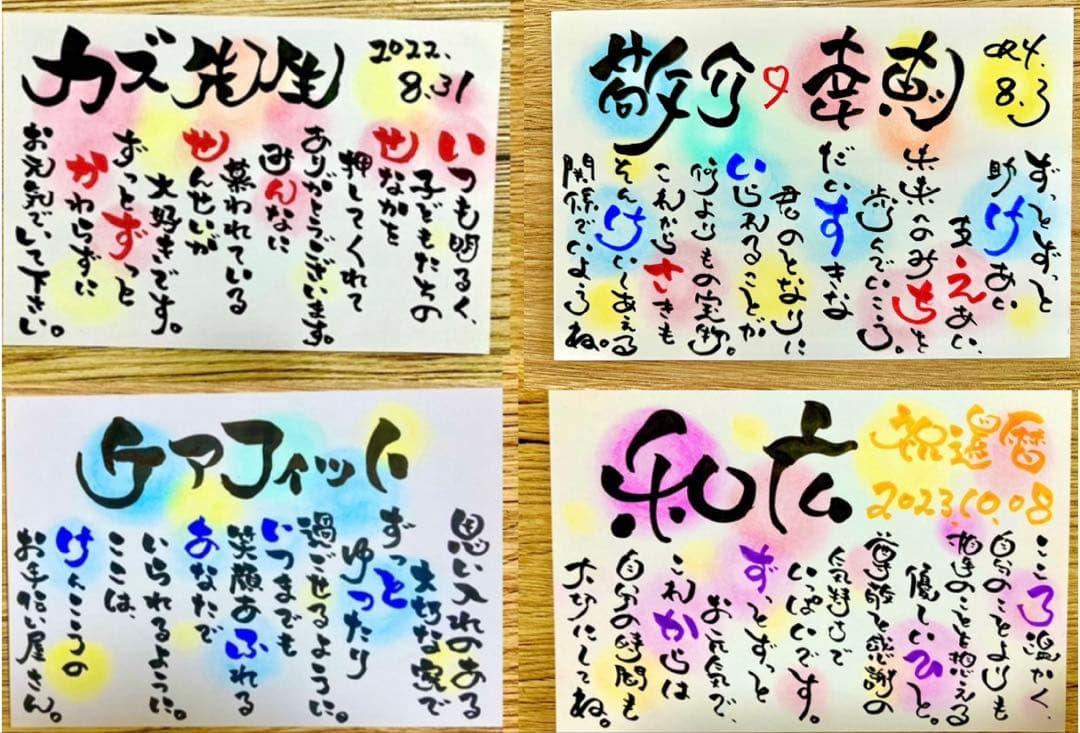 カズ先生
2022.
8.31
いつも明るく、
子どもたちの
せなかを
押してくれて
ありがとうございます。
みんなに
慕われている
せんせいが
大好きです。
ずっとずっと
かわらずに
お元気で、いして下さい。
敬介♡幸恵
R4.
8.3
ずっとずっと
助けあい
支えあい、
未来へのみちを
歩んでいこう。
だいすきな
君のとなりに
いられることが
何よりもの宝物。
これからさきも
そんけいしあえる
関係でいようね。
ケアフィット
思い入れのある
大切な家で
ずっと
ゆったり
過ごせるように。
いつまでも
笑顔あふれる
あなたで
いられるように。
ここは、
けんこうの
お手伝い屋さん。
和広
祝還暦
2023.10.08
こころ温かく、
自分のことよりも
相手のことを想える
優しいひと。
尊敬と感謝の
気持ちで
いっぱいです。
ずっとずっと
お元気で、
これからは
自分の時間も
大切にしてね。